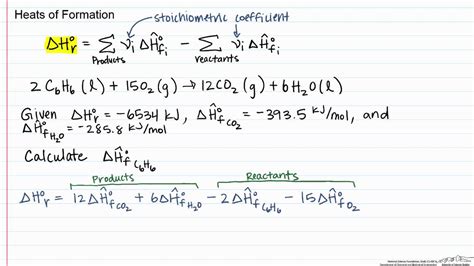 Heats of Formation
stoichiometric coefficient
ΔH°r = Σ νi ΔĤ°fi − Σ νi ΔĤ°fi
Products reactants
2 C6H6 (l) + 15O2 (g) → 12CO2 (g) + 6H2O (l)
Given ΔH°r = −6534 kJ, ΔĤ°f CO2 = −393.5 kJ/mol, and
ΔĤ°f H2O = −285.8 kJ/mol
Calculate ΔĤ°f C6H6
Products Reactants
ΔH°r = 12ΔĤ°f CO2 + 6ΔĤ°f H2O − 2ΔĤ°f C6H6 − 15ΔĤ°f O2